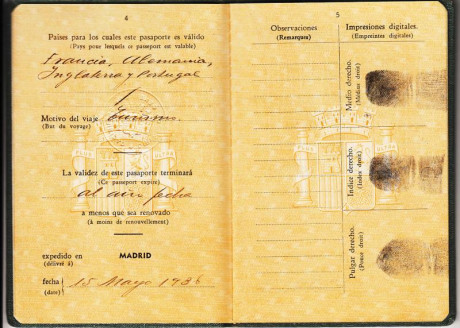 4
Países para los cuales este pasaporte es válido
(Pays pour lesquels ce passeport est valable)
Francia, Alemania,
Inglaterra y Portugal
Motivo del viaje Turismo.
(But du voyage)
La validez de este pasaporte terminará
(Ce passeport expire)
al año fecha
a menos que sea renovado
(à moins de renouvellement)
expedido en MADRID
(délivré à)
fecha 15 Mayo 1936
(date)
5
Observaciones
(Remarques)
Impresiones digitales.
(Empreintes digitales)
Medio derecho.
(Médius droit)
Indice derecho.
(Index droit)
Pulgar derecho.
(Pouce droit)